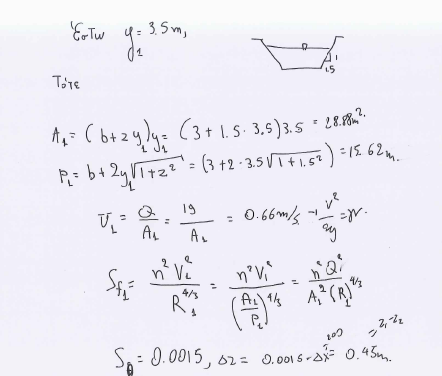 Έστω y₁ = 3.5 m,
1
1.5
Τότε
A₁ = (b + z y₁) y₁ = (3 + 1.5 · 3.5) 3.5 = 28.88 m².
P₁ = b + 2y₁ √(1+z²) = (3 + 2 · 3.5 √(1 + 1.5²)) = 15.62 m.
U₁ = Q / A₁ = 19 / A₁ = 0.66 m/s → V² / 2g =
S_f₁ = n² V₁² / R₁^(4/3) = n² V₁² / (A₁/P₁)^(4/3) = n² Q₁² / A₁² (R₁)^(4/3)
S₀ = 0.0015, Δz = 0.0015 · Δx = 0.45 m.
300
= z₁ - z₂